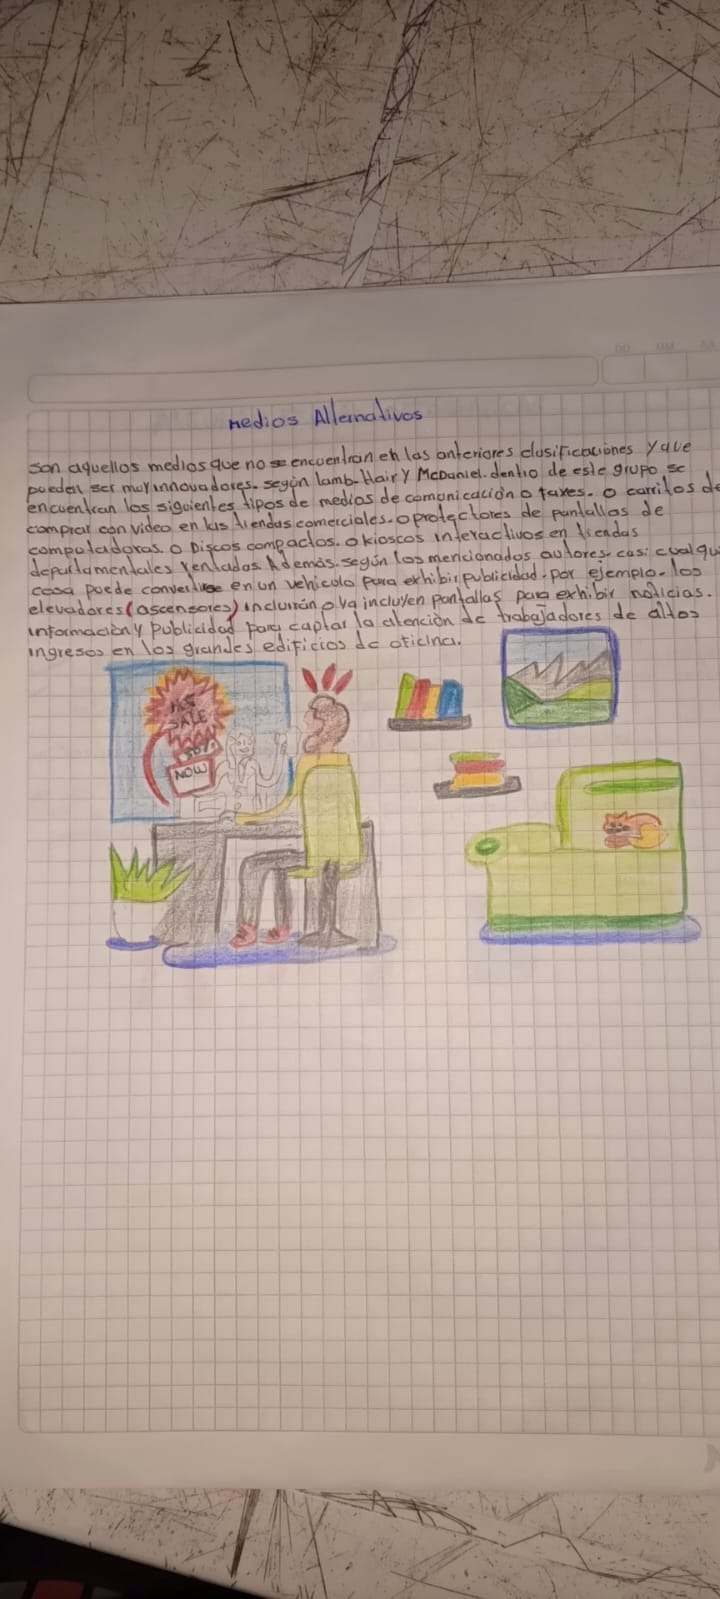 Medios Alternativos
son aquellos medios que no se encuentran en las anteriores clasificaciones y que
pueden ser muy innovadores. según lamb-Hair y McDaniel. dentro de este grupo se
encuentran los siguientes tipos de medios de comunicación o faxes. o carritos de
comprar con video en las tiendas comerciales. o protectores de pantallas de
computadoras. o Discos compactos. o kioscos interactivos en tiendas
departamentales ventadas. Además. según los mencionados autores. casi cualqu
cosa puede convertirse en un vehiculo para exhibir publicidad. por ejemplo. los
elevadores (ascensores) incluirán o ya incluyen pantallas para exhibir noticias.
información y publicidad para captar la atención de trabajadores de altos
ingresos en los grandes edificios de oficina.
HOT
SALE
50%
NOW